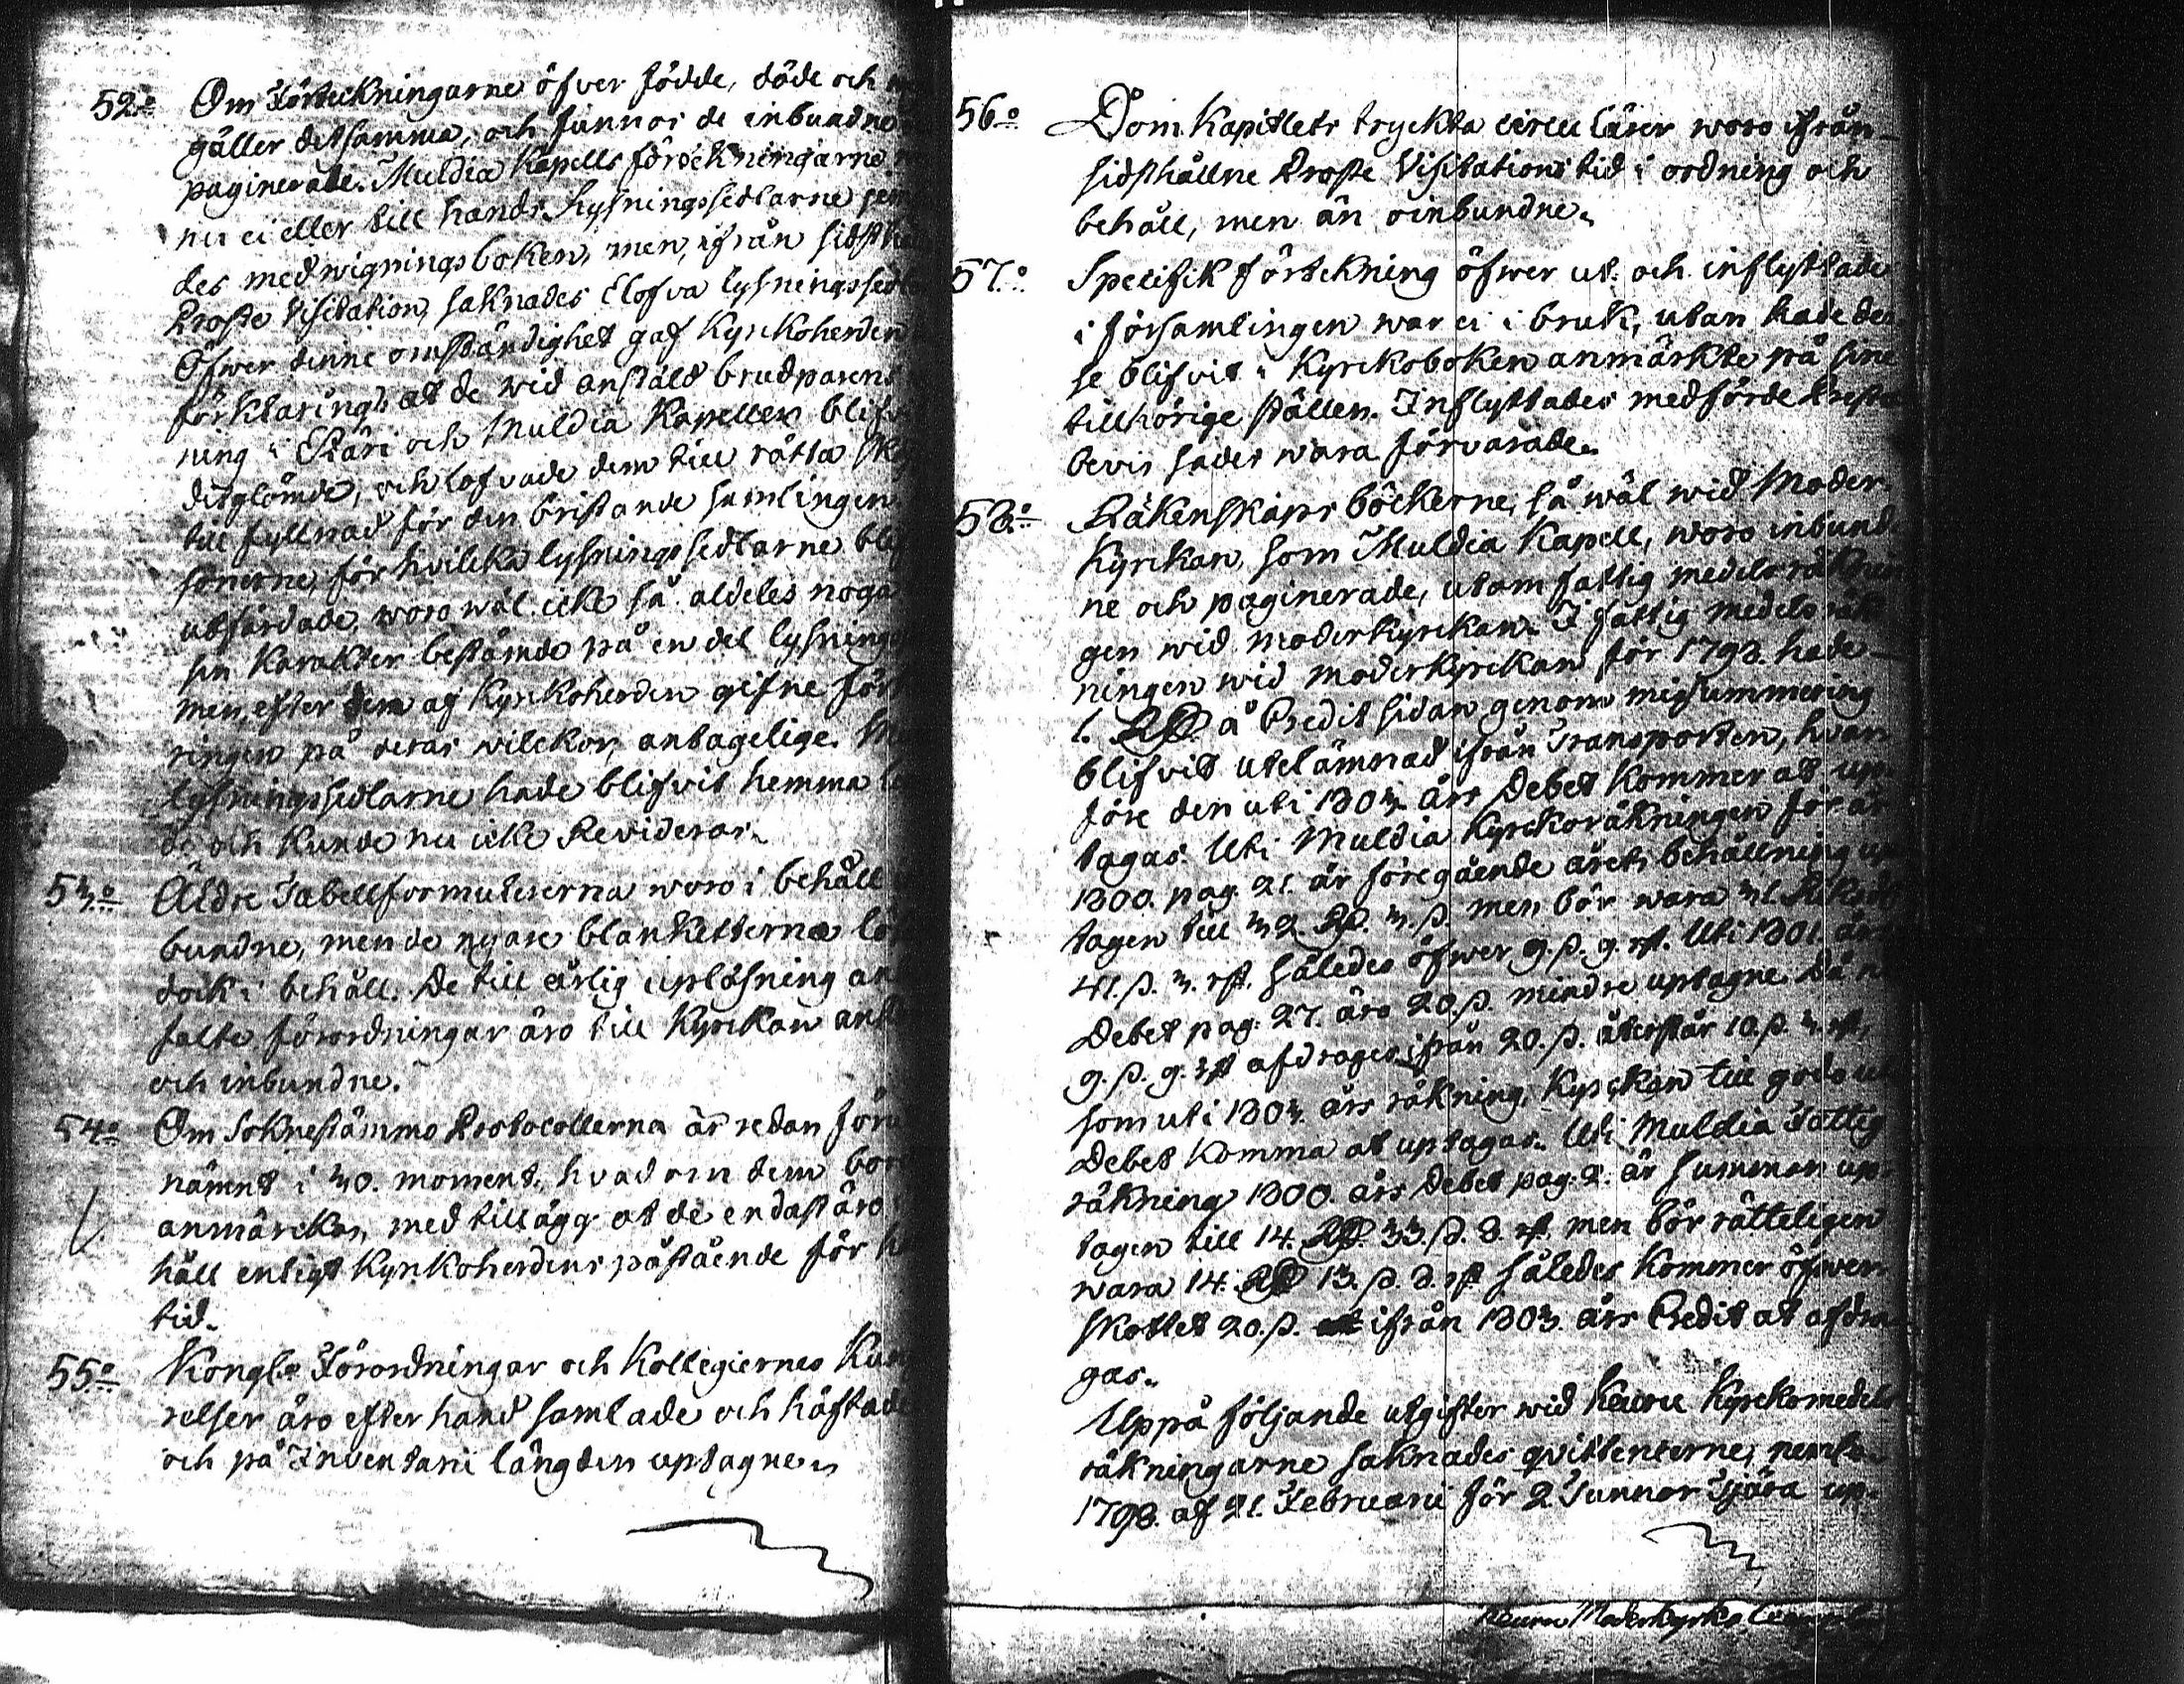 52:o Om Förteckningarne öfver födde, döde och
gäller det samma, och funnos de inbundne
paginerade. Muldia Kapells förteckningarne
nu ei eller till hands. Lysningssedlarne
des med wigningsboken, men, ifrån sidsthå
Proste Visitation, saknades Elofva lysningssed
Öfwer denne omständighet gaf Kyrckoherden
förklaring, at de wid anstäld brudparens
ning i och Muldia Kapeller blif
ditglömde, och lofvade dem till rätta
till fyllnad för den bristande samlingen
sonerne, för hvilcka lysningssedlarne bli
utfärdade, woro wäl icke så aldeles noga
sin Karakter bestämde på en del lysnings
men, efter dem af Kyrckoherden gifne för
ringen på deras wilckor, antagelige.
lysningssedlarne hade blifvit hemma
de och Kunde nu icke Revideras.
53:o Äldre Tabellformulererna woro i behåll
bundne, men de nyare blanketterna
dock i behåll. De till årlig upläsning an
falte förordningar äro till Kyrckan
och inbundne.
54:o Om Soknestämmo Protocollerna är redan för
nämnt i 30. moment, hvad om dem bör
anmärckas, med tillägg at de endast äro
håll enligt Kyrckoherdens påstående för
tid.
55:o Kongl:e Förordningar och Kollegiernes Kun
relser äro efter hand samlade och häftade
och på Inventarii längden uptagne.
56:o Dom Kapitlets tryckta circulairer woro ifrån
sidsthållne Proste Visitations tid i ordning och
behåll, men än oinbundne.
57:o Specifik förtekning öfwer ut- och inflyttade
i församlingen war ei i bruk, utan hade des
se blifvit i Kyrckoboken anmärkte på sine
tillhörige ställen. Inflyttades medförde Prest
bevis sades wara förvarade.
58:o Räkenskaps böckerne, så wäl wid Moder
Kyrckan, som Muldia Kapell, woro inbund
ne och paginerade, utom fattig medels räknin
gen wid moderkyrckan. I fattig medels räk
ningen wid moderkyrckan för 1798. hade
1. RD. å Credit sidan genom missummering
blifvit utelämnad ifrån Transporten, hvar
före den uti 1803. års Debet Kommer at up
tagas. Uti Muldia Kyrckoräkningen för år
1800. pag. 21. är föregående årets behållning up
tagen till 32. RD. 3. ß. men bör wara 31. Riksd
41. ß. 3. rst. således öfwer 9. ß. 9. rst. Uti 1801. års
Debet pag. 27. äro 20. ß. mindre uptagne. Då n
9. ß. 9. rst afdrages ifrån 20. ß. återstår 10. ß. 3. rst,
som uti 1803. års räkning, Kyrckan till godo uti
Debet Komma at uptagas. Uti Muldia Fattig
räkning 1800. års Debet pag. 2. är Summan up
tagen till 14. RD. 33. ß. 8. rst. men bör rätteligen
wara 14. RD 13. ß. 8. rst således Kommer öfwer
skottet 20. ß. ifrån 1803. års Credit at afdra
gas.
Uppå följande utgifter wid Keuru Kyrckomedels
räkningarne saknades qvittencerne, neml:n
1798. af 21. Februarii för 2 Tunnor Tjära up
Keuru Moderkyrko